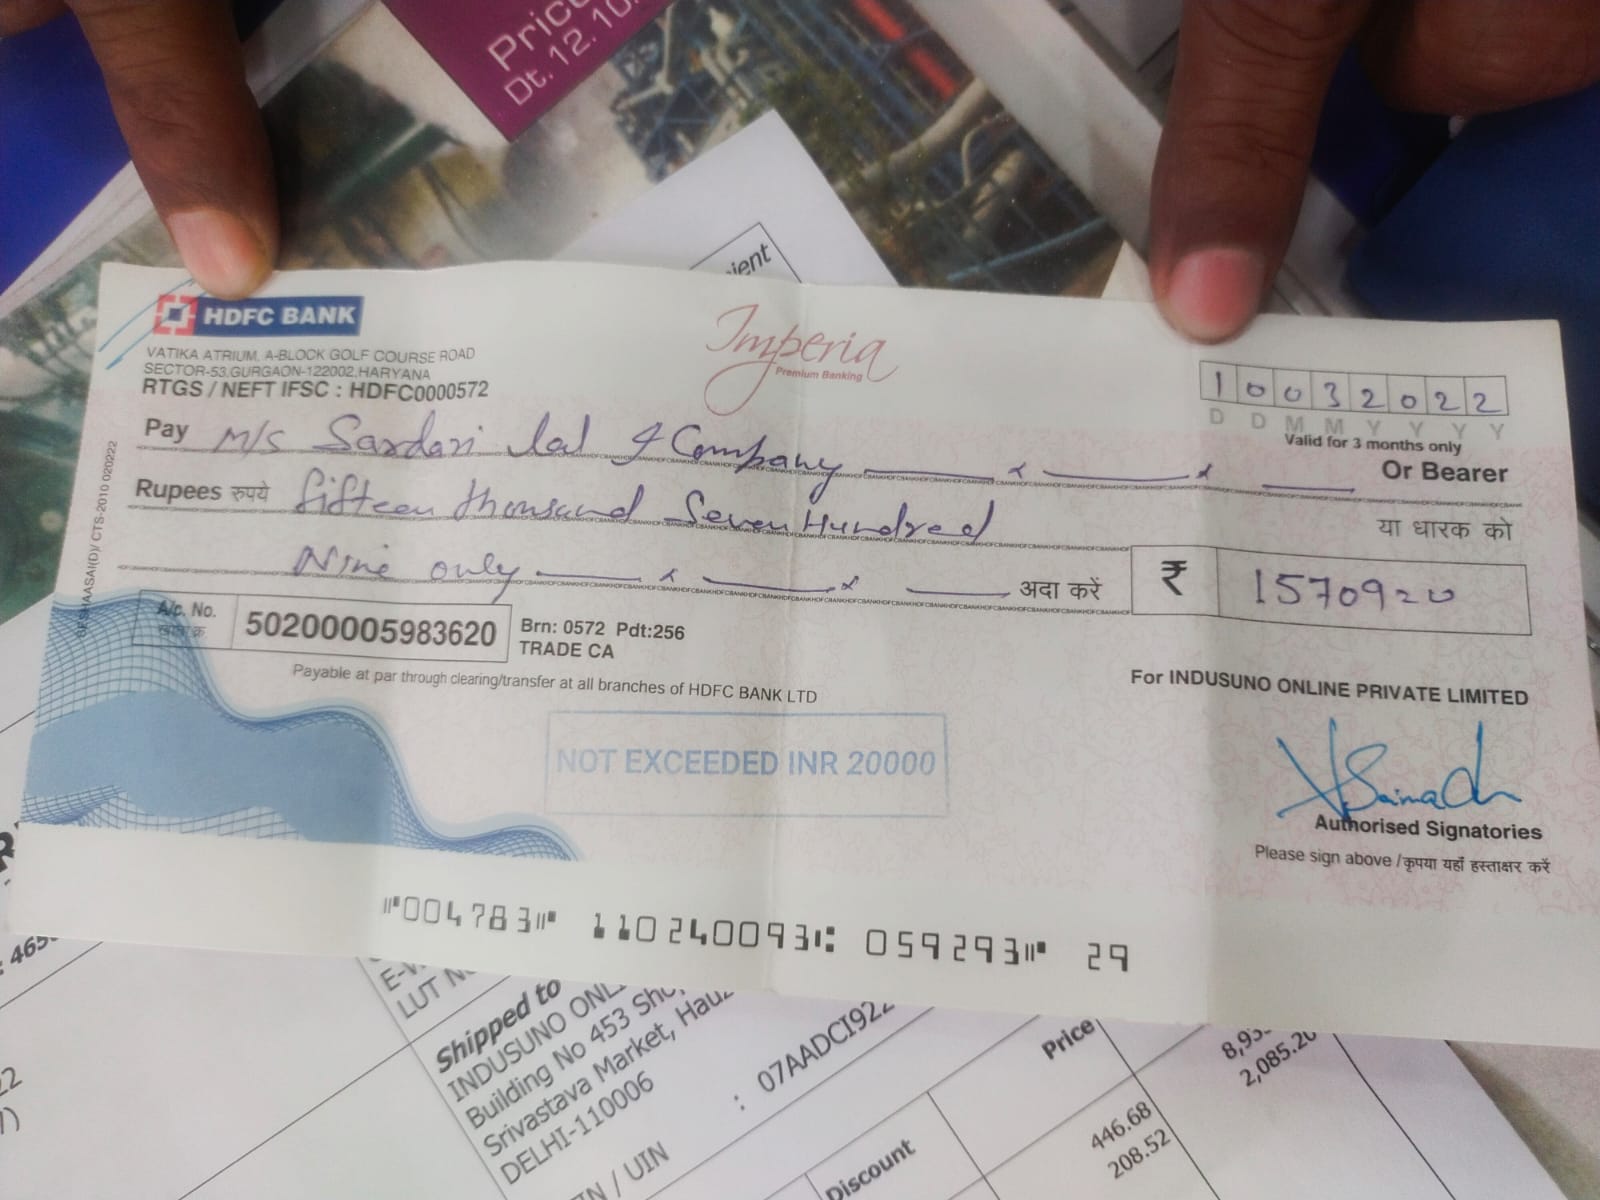 Price
Dt. 12.10.
ient
HDFC BANK
VATIKA ATRIUM, A-BLOCK GOLF COURSE ROAD
SECTOR-53,GURGAON-122002,HARYANA
RTGS / NEFT IFSC : HDFC0000572
Imperia
Premium Banking
10032022
D D M M Y Y Y Y
Valid for 3 months only
Pay M/s Sardari Lal & Company
Or Bearer
Rupees रुपये fifteen thousand Seven Hundred
या धारक को
Nine only
अदा करें
₹ 15709=00
CTS-2010 020222
A/c. No.
50200005983620
Brn: 0572 Pdt:256
TRADE CA
Payable at par through clearing/transfer at all branches of HDFC BANK LTD
For INDUSUNO ONLINE PRIVATE LIMITED
NOT EXCEEDED INR 20000
Authorised Signatories
Please sign above / कृपया यहाँ हस्ताक्षर करें
⑈004783⑈ 110240093⑆ 059293⑈ 29
LUT
Shipped to
INDUSUNO
Building No 453
Srivastava Market,
DELHI-110006
: 07AADCI922
/ UIN
Discount
Price
2,085.20
446.68
208.52